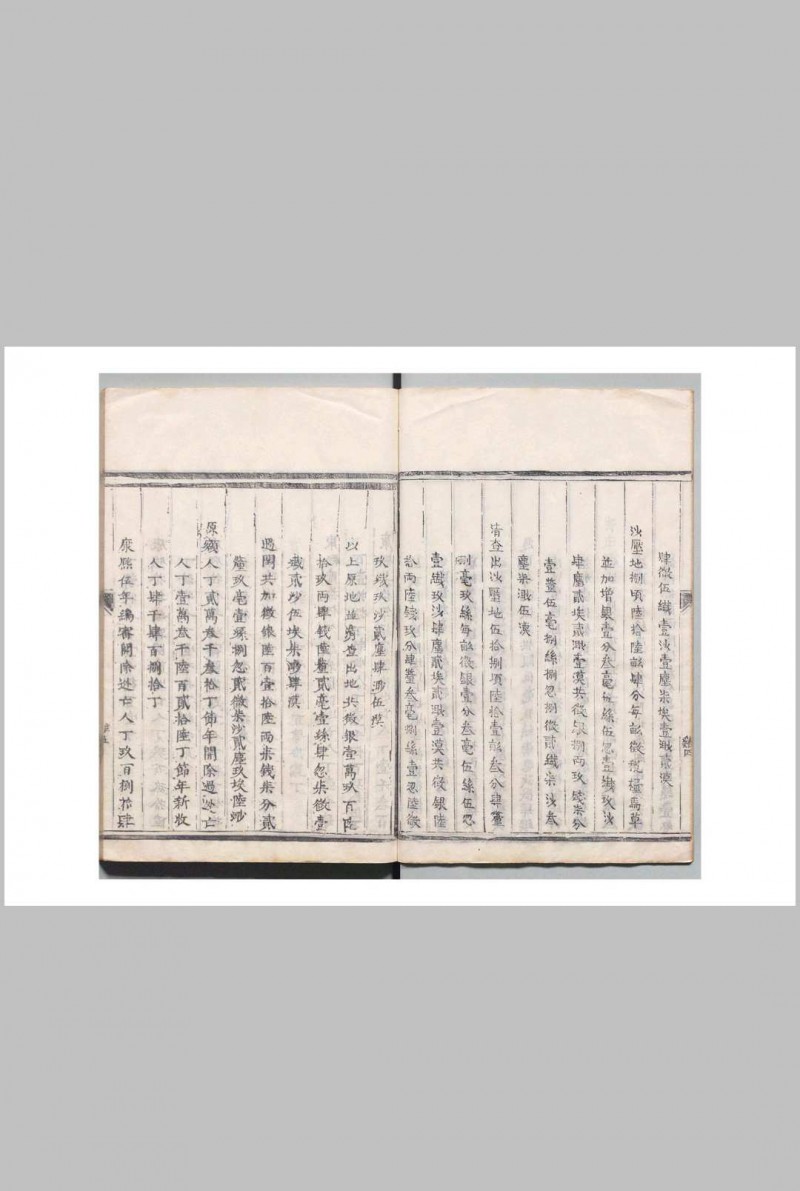 肆微伍纖壹沙壹塵柒埃壹渺貳漠
沙壓地捌頃陸拾陸畝肆分每畝徵稅糧馬草
並加增銀壹分叁毫伍絲伍忽壹纖玖沙
肆塵貳埃貳渺壹漠共徵銀捌兩玖錢柒分
壹釐伍毫捌絲捌忽捌微貳纖柒沙叁
塵柒渺伍漠
清查出沙壓地伍拾捌項陸拾壹畝叁分肆釐
捌毫玖絲每畝徵銀壹分叁毫伍絲伍忽
壹纖玖沙肆塵貳埃貳渺壹漠共徵銀陸
拾兩陸錢玖分肆釐叁毫捌絲壹忽陸微
玖纖玖沙貳塵肆渺伍漠
以上原地並清查出地共徵銀壹萬玖百陸
拾玖兩肆錢陸釐貳毫壹絲肆忽柒微壹
纖貳沙伍埃柒渺肆漠
遇閏共加徵銀陸百壹拾陸兩柒錢柒分貳
釐玖毫壹絲捌忽貳微柒沙貳塵玖埃陸渺
原額人丁貳萬叁千叁拾丁節年開除過逃亡
人丁壹萬叁千陸百貳拾陸丁節年新收
人丁肆千肆百捌拾丁
康熙伍年編審開除逃亡人丁玖百捌拾肆